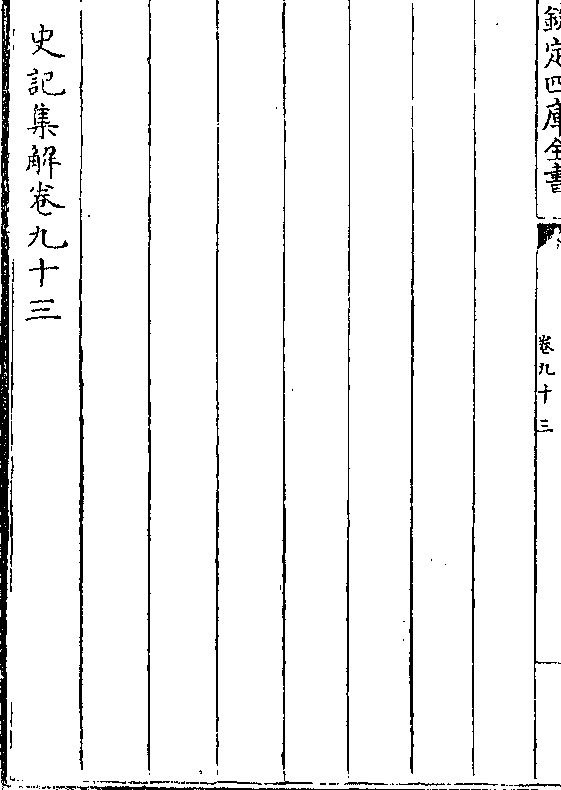 欽定四庫全書
卷九十三
史記集解卷九十三